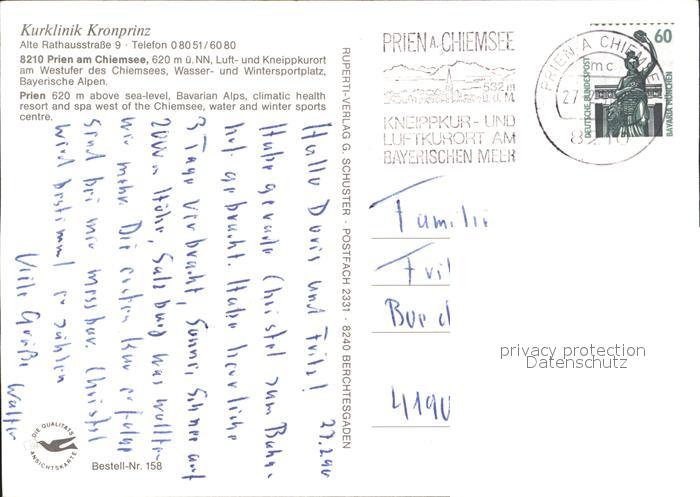 Kurklinik Kronprinz
Alte Rathausstraße 9 · Telefon 0 80 51 / 60 80
8210 Prien am Chiemsee, 620 m ü.NN, Luft- und Kneippkurort
am Westufer des Chiemsees, Wasser- und Wintersportplatz,
Bayerische Alpen.
Prien 620 m above sea-level, Bavarian Alps, climatic health
resort and spa west of the Chiemsee, water and winter sports
centre.
27.2.90
Hallo Doris und Fritz!
Habe gerade Christel zum Bahn-
hof gebracht. Habe herrliche
3 Tage verbracht, Sonne, Schnee auf
2000m Höhe, Salzburg was wollten
wir mehr. Die ersten Kur erfolge
sind bei mir messbar. Christel
wird bestimmt erzählen
Viele Grüße Walter
DIE QUALITÄTS
ANSICHTSKARTE
Bestell-Nr. 158
RUPERTI-VERLAG G. SCHUSTER · POSTFACH 2331 · 8240 BERCHTESGADEN
PRIEN A. CHIEMSEE
532 m
ü. d. M.
KNEIPPKUR- UND
LUFTKURORT AM
BAYERISCHEN MEER
PRIEN A CHIEMSEE
mc
27.
8210
60
DEUTSCHE BUNDESPOST
BAVARIA MÜNCHEN
Familie
4190
privacy protection
Datenschutz